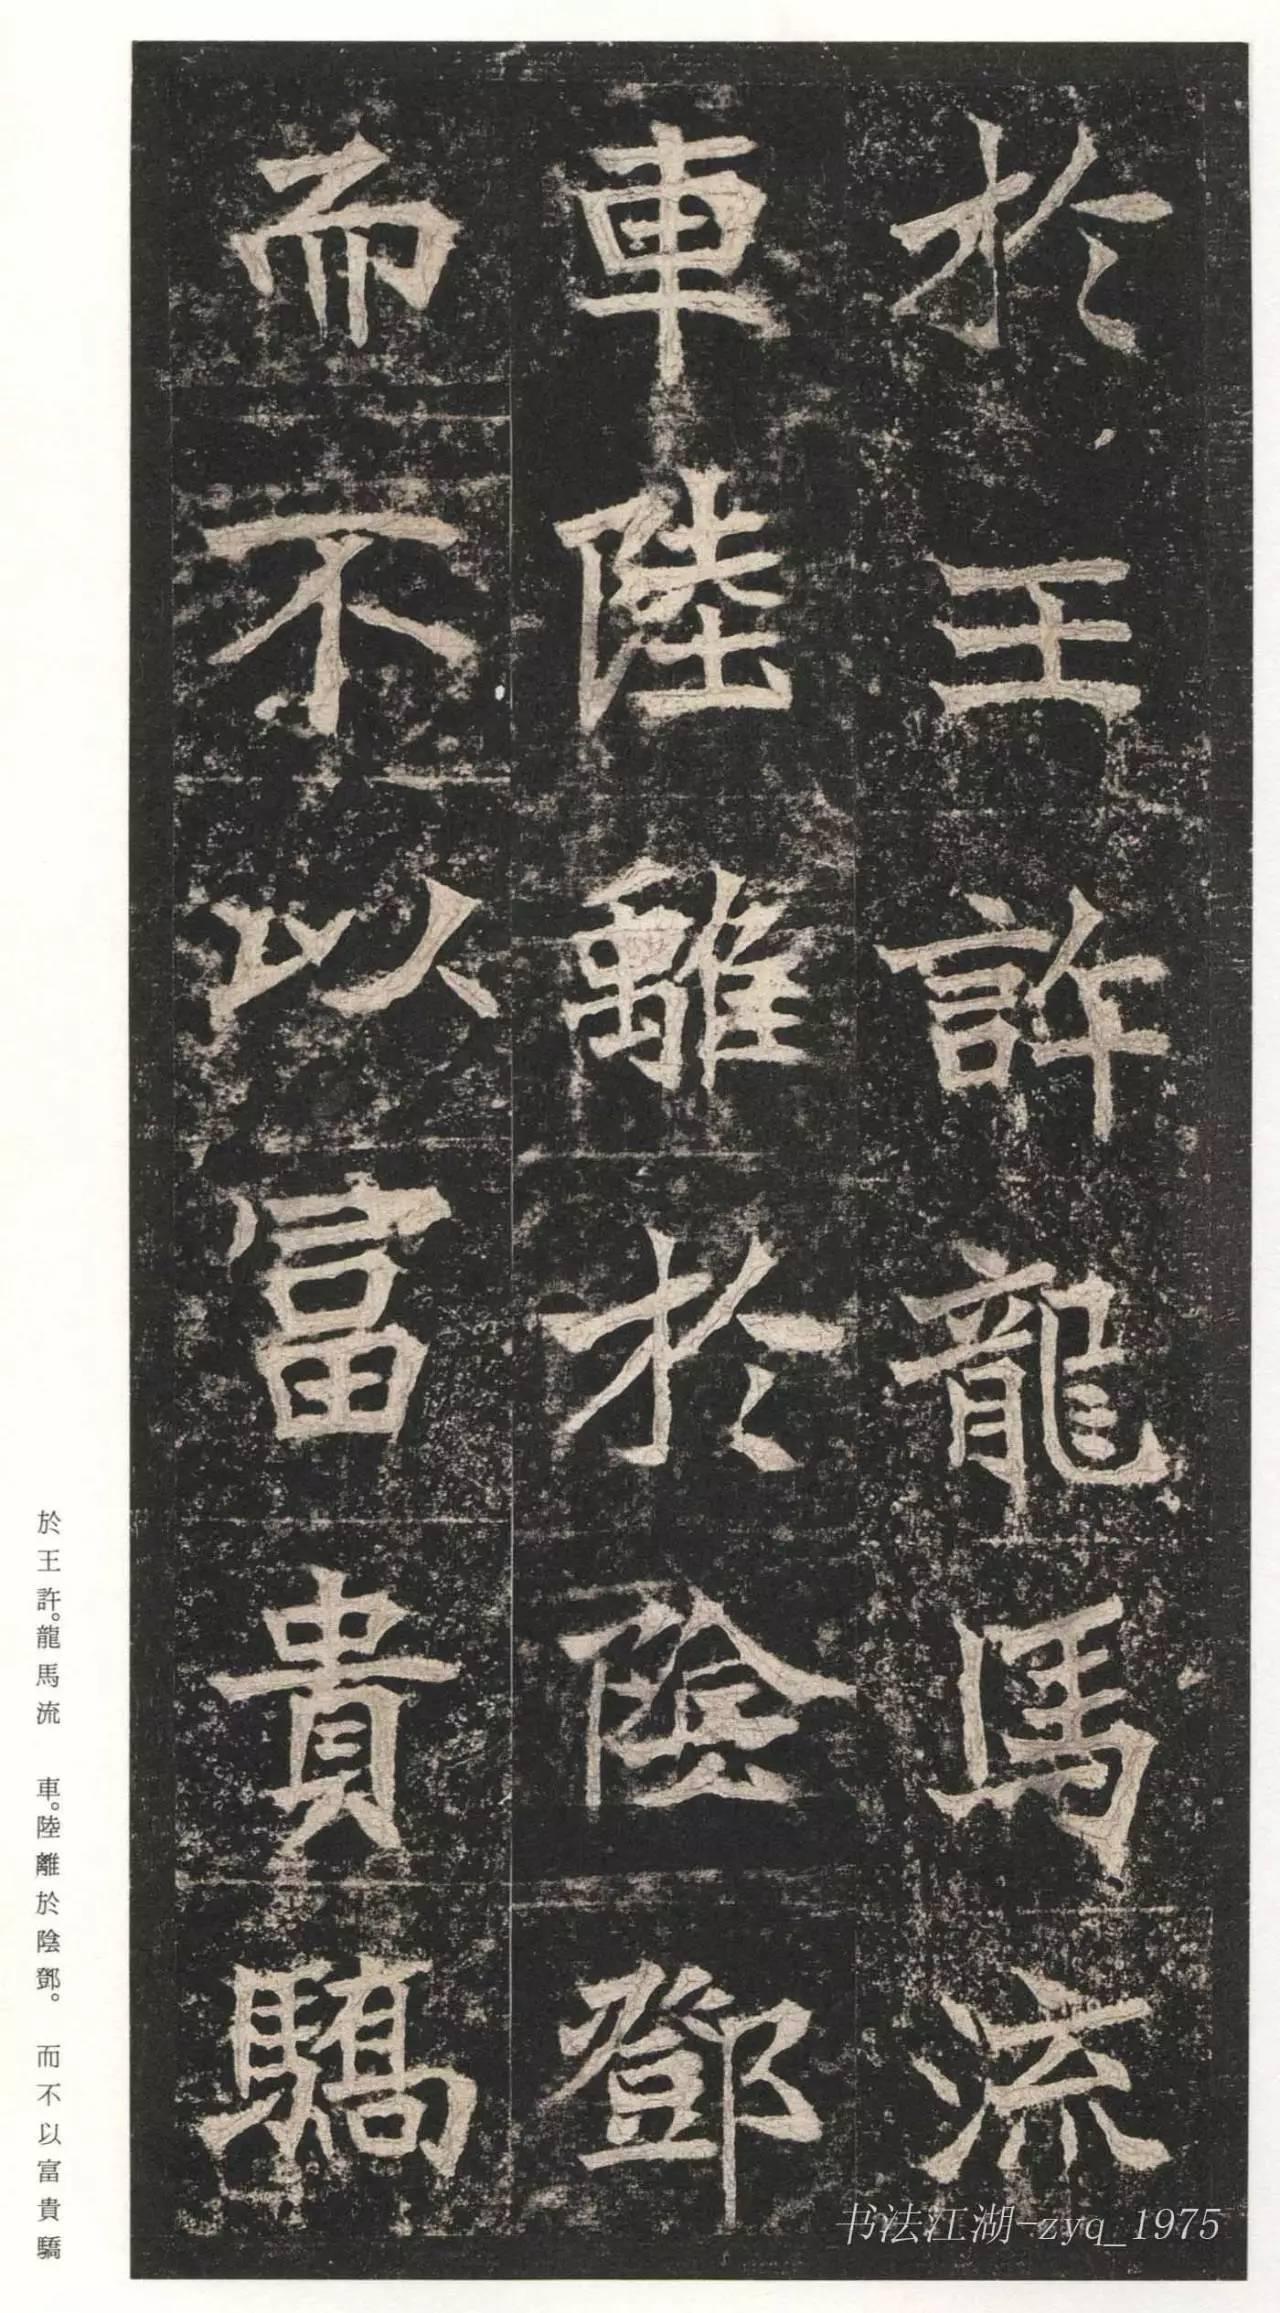 於王許龍馬流
車陸離於陰鄧
而不以富貴驕
於王許。龍馬流　車。陸離於陰鄧。　而不以富貴驕
书法江湖-zyq_1975